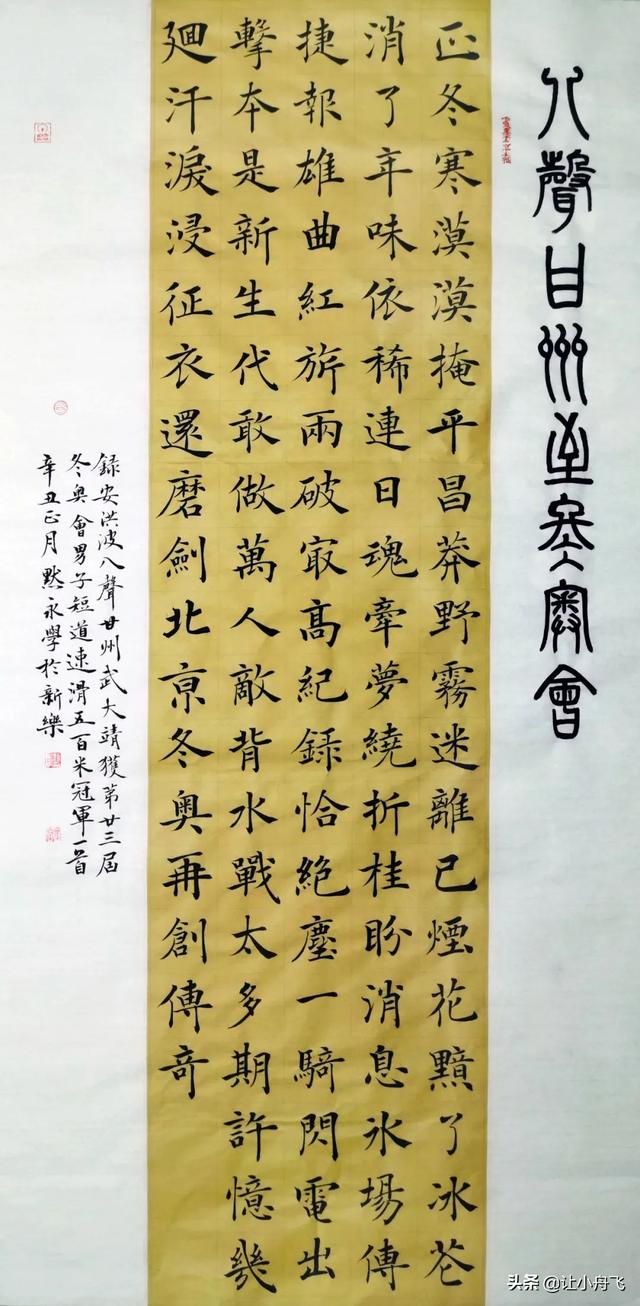 八聲甘州冬奧會
正冬寒漠漠掩平昌莽野霧迷離已煙花黯了冰花
消了年味依稀連日魂牽夢繞折桂盼消息冰場傳
捷報雄曲紅旂兩破冣髙紀録恰絕塵一騎閃電出
擊本是新生代敢做萬人敵背水戰太多期許憶幾
廻汗淚浸征衣還磨劍北亰冬奧再創傳奇
録安洪波八聲甘州武大靖獲第廿三屆
冬奧會男子短道速滑五百米冠軍一首
辛丑正月默永學於新樂
头条 @让小舟飞